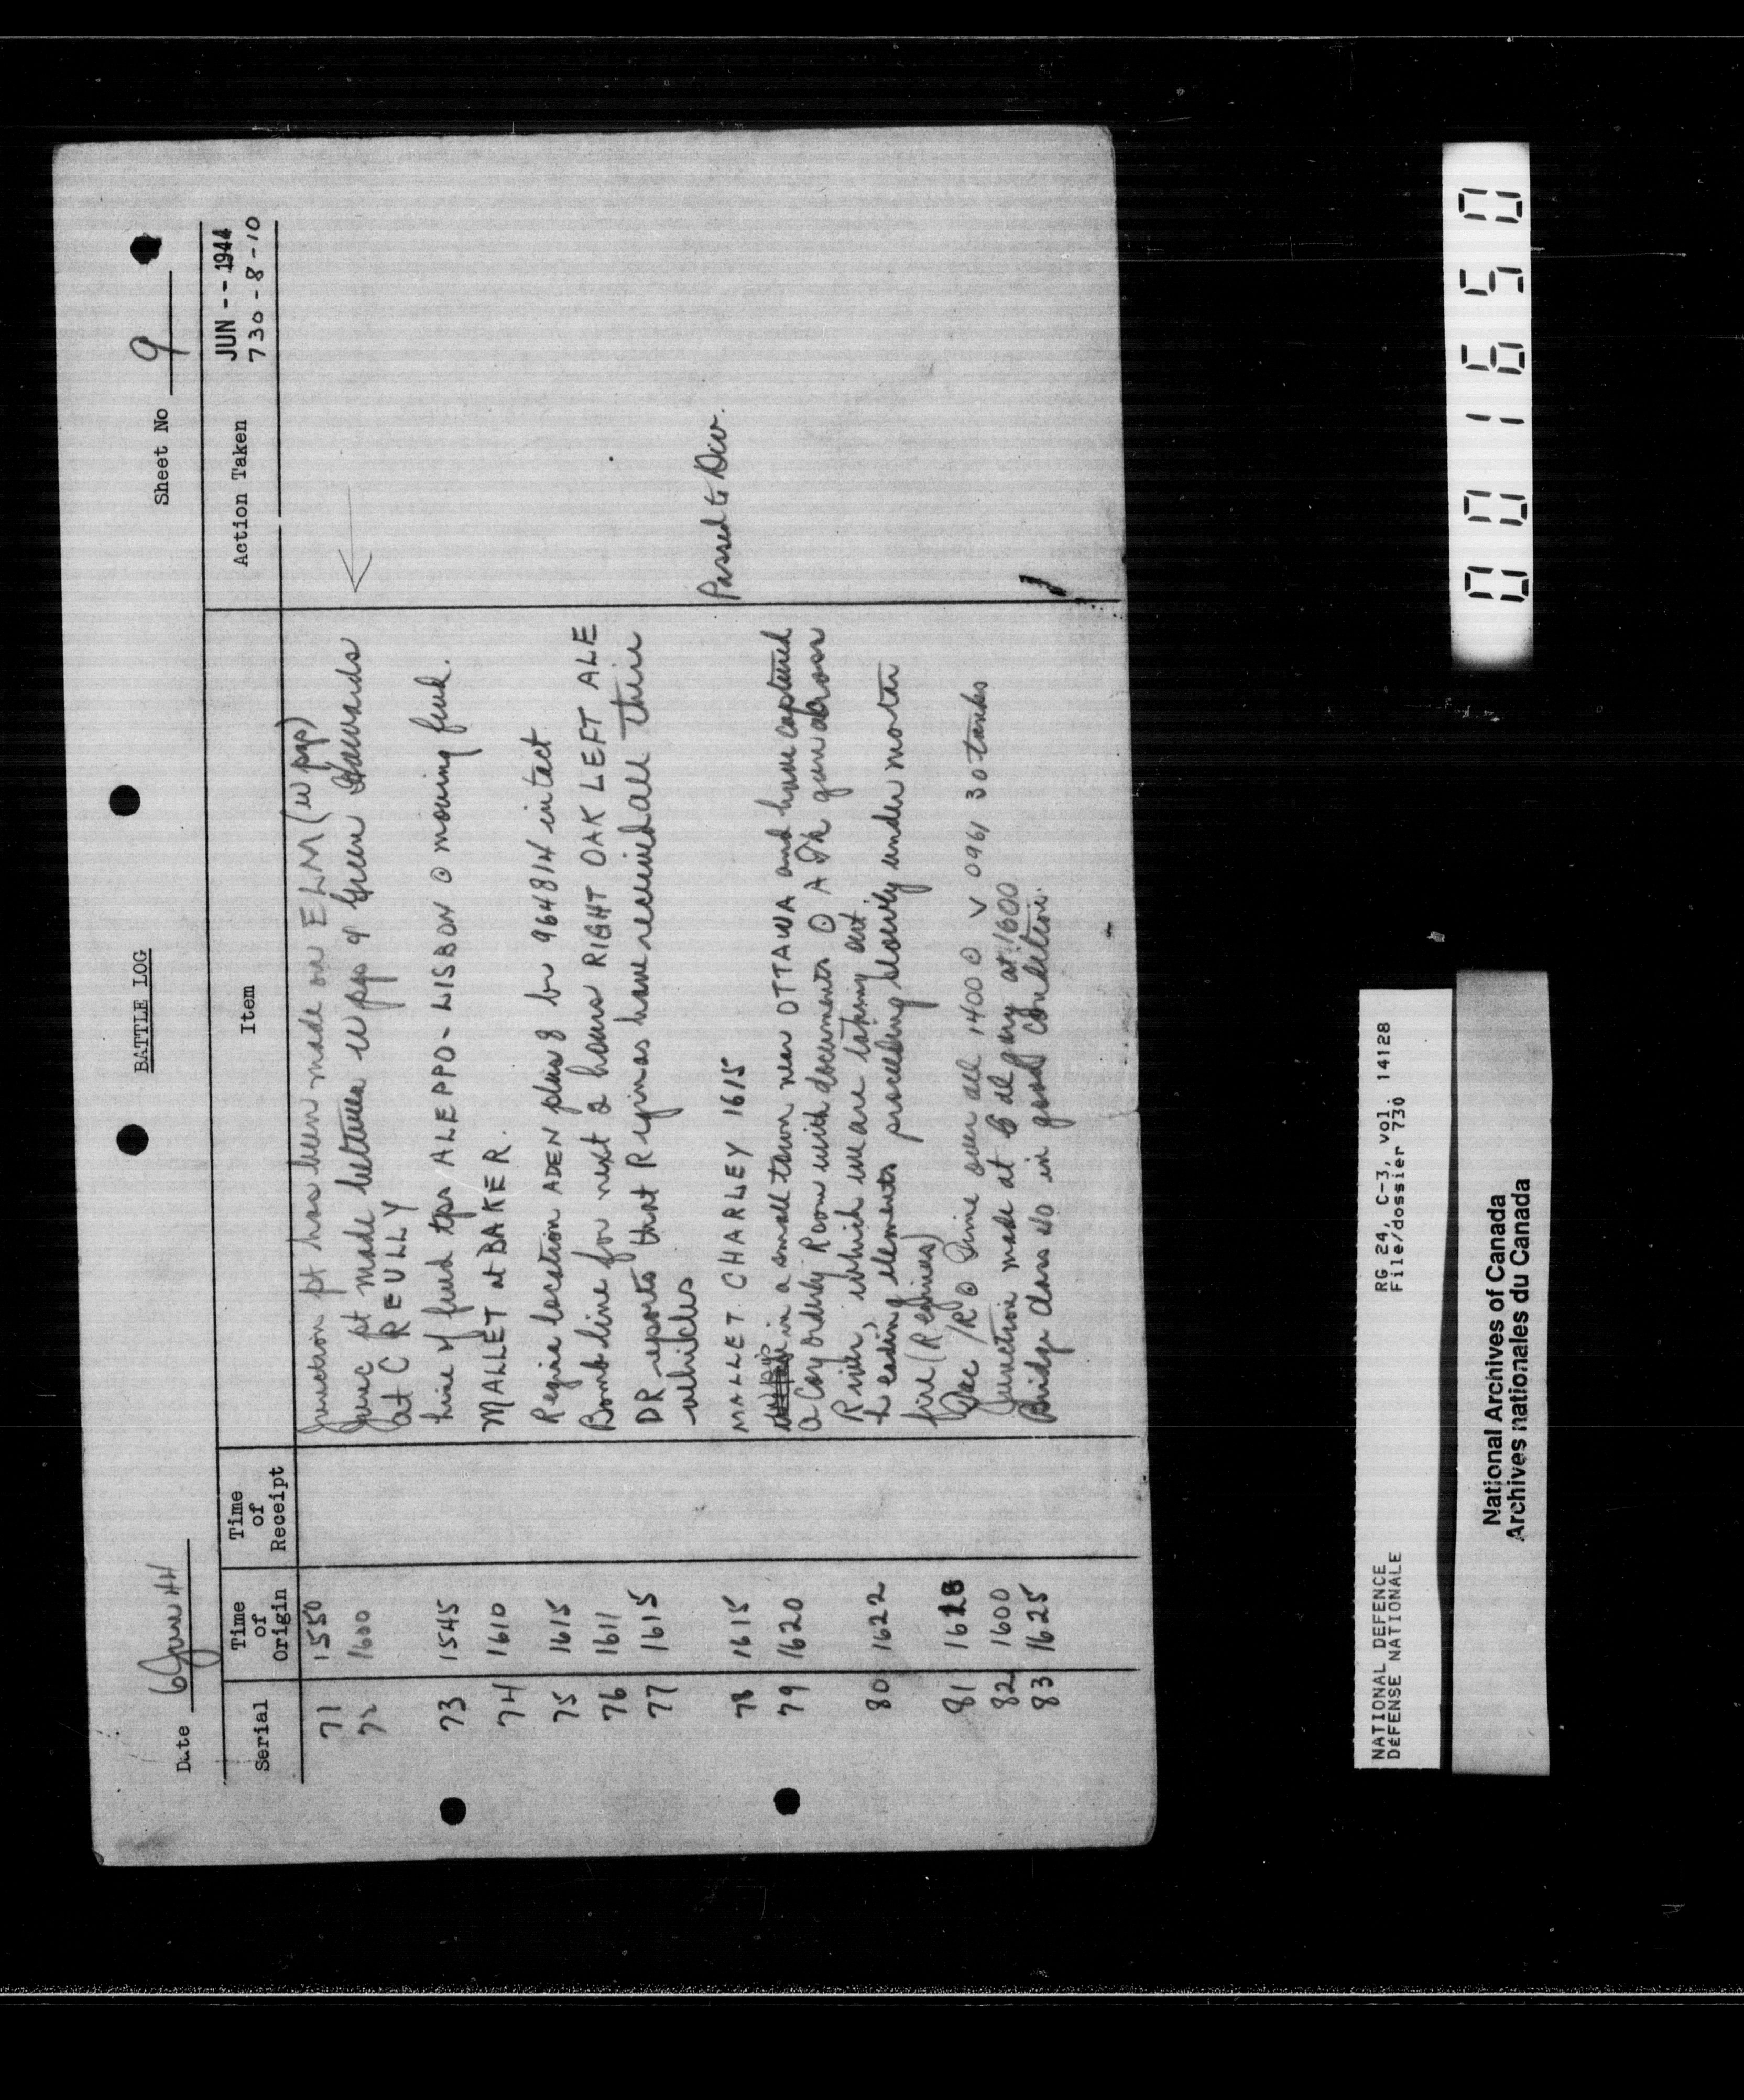 BATTLE LOG
Date 6 June 44
Sheet No 9
Serial
Time of Origin
Time of Receipt
Item
Action Taken
JUN -- 1944
730-8-10
71 1550 Junction pt has been made on ELM (w pgs)
72 1600 Junc pt made between w pgs & Green Howards
at CREULLY
73 1545 Line of fwd tps ALEPPO - LISBON O moving fwd.
74 1610 MALLET at BAKER.
75 1615 Regina location ADEN plus 8 br 964814 intact
76 1611 Bomb line for next 2 hours RIGHT OAK LEFT ALE
77 1615 DR reports that Reginas have received all their
vehicles
78 1615 MALLET CHARLEY 1615
Passed to Div.
79 1620 in a small town near OTTAWA and have captured
a Coy Orderly Room with documents O A Tk gun across
River, which we are taking out.
80 1622 Leading elements proceeding slowly under mortar
fire (Reginas)
81 1628 O Time over all 1400 O V 0961 30 tanks
82 1600 Junction made at at 1600
83 1625 Bridge Class 40 in good condition.
001650
NATIONAL DEFENCE
DÉFENSE NATIONALE
RG 24, C-3, vol. 14128
File/dossier 730
National Archives of Canada
Archives nationales du Canada